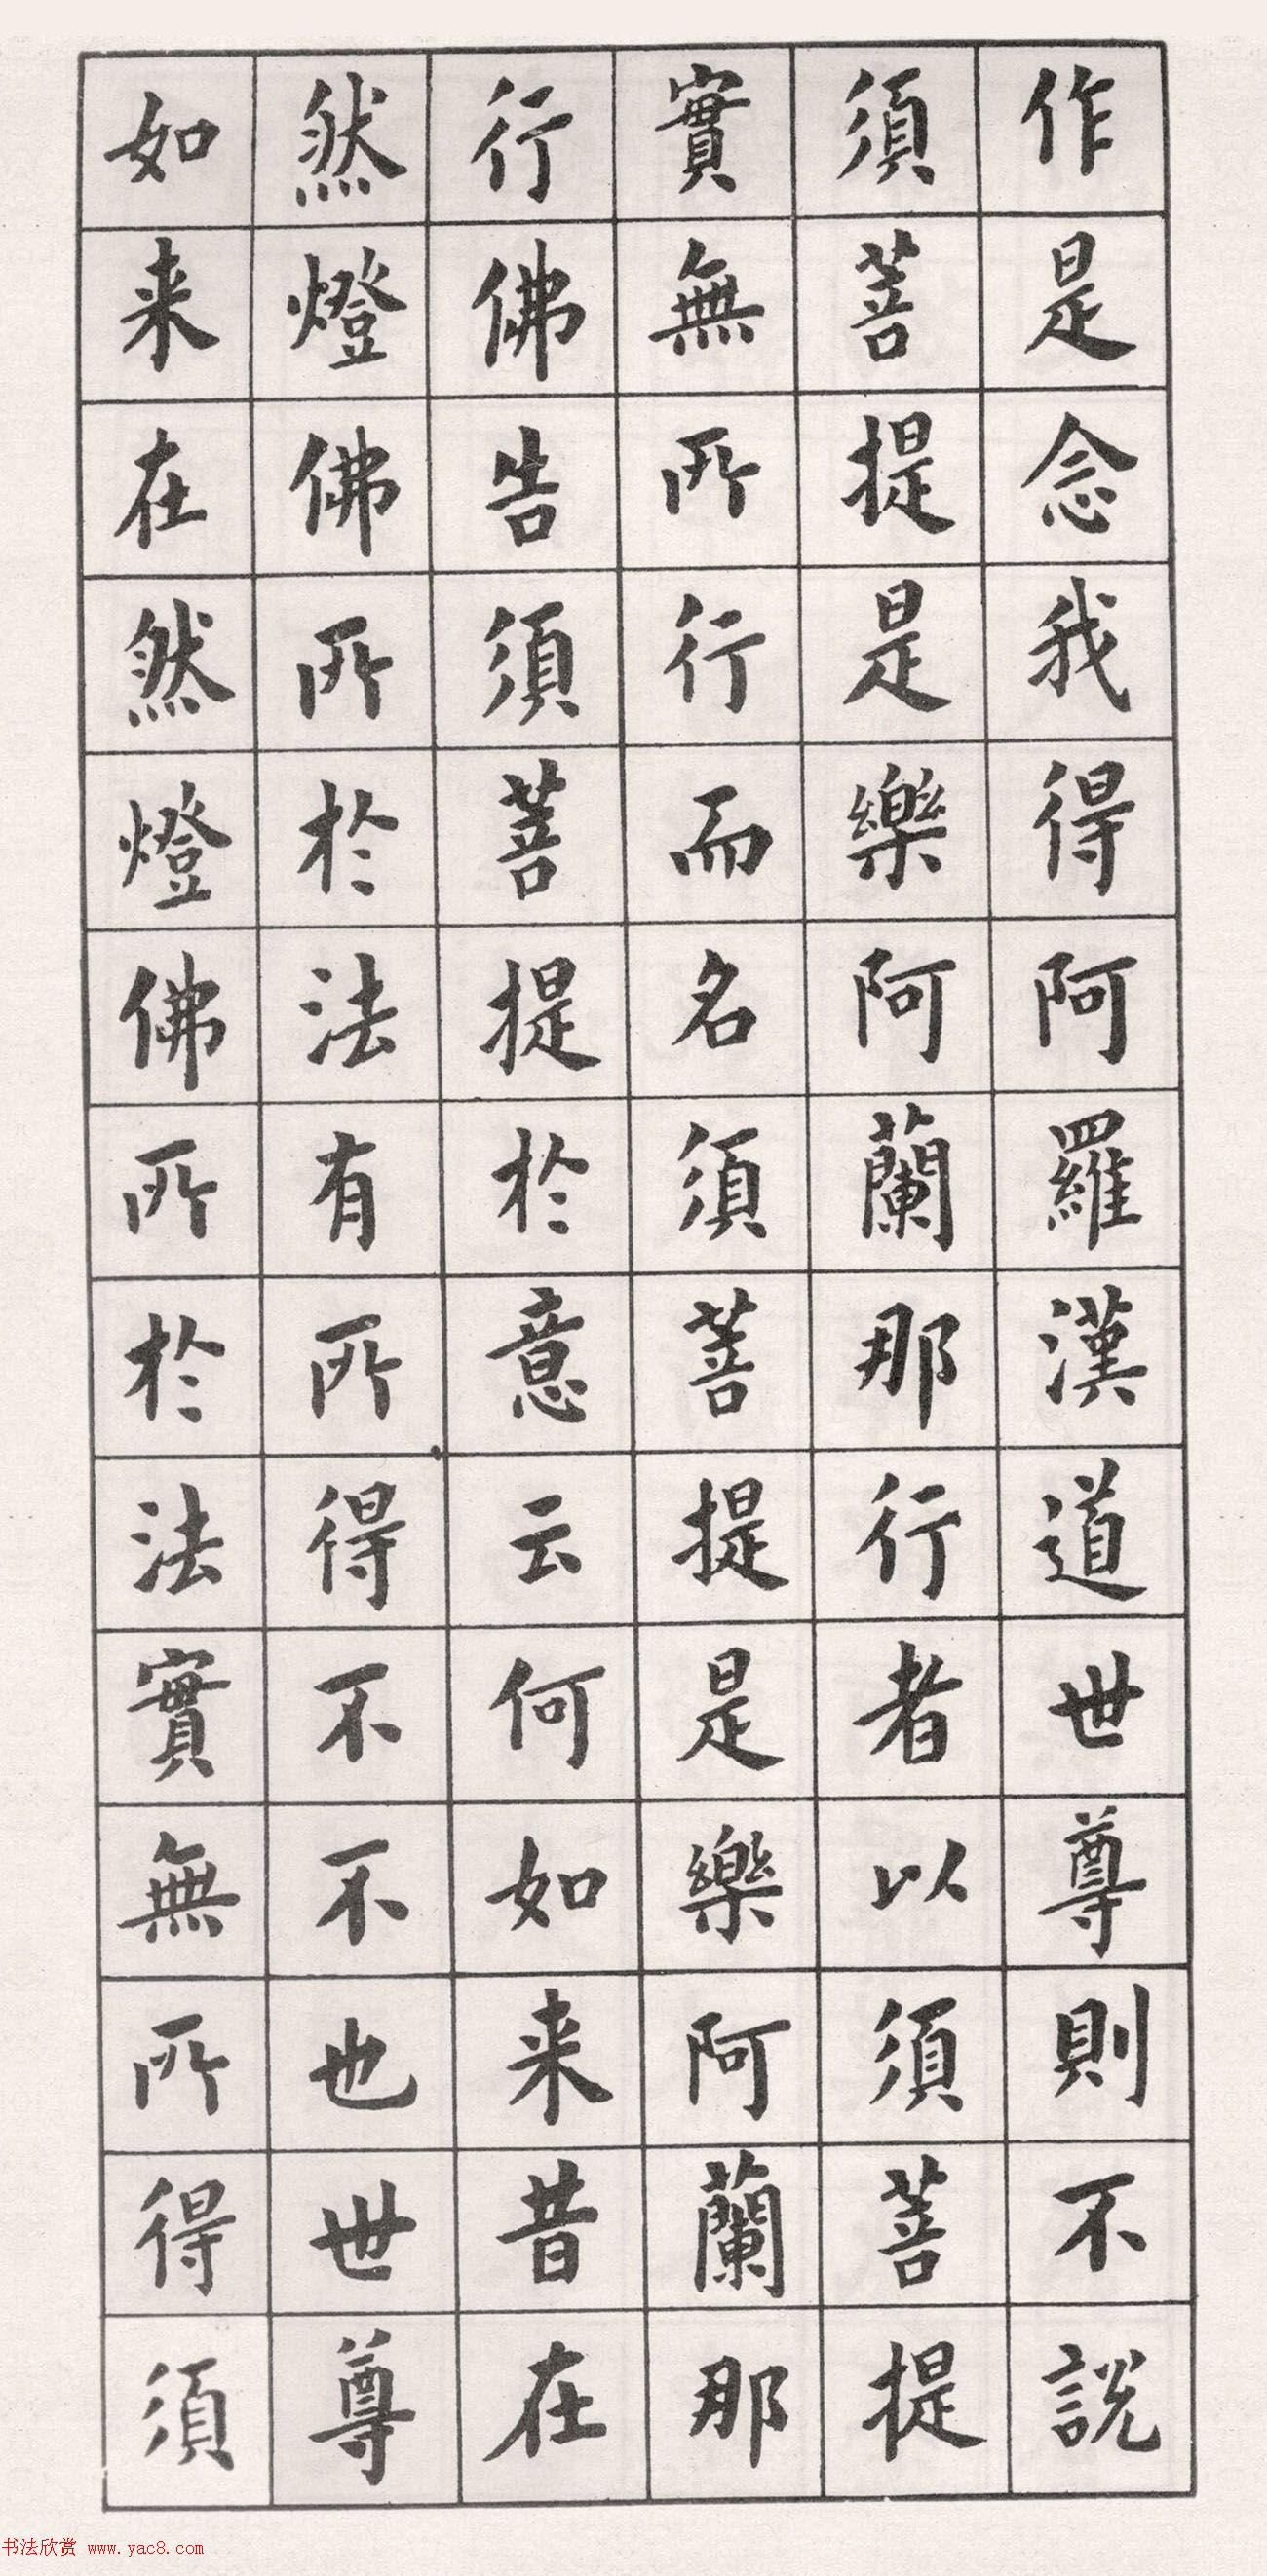 作是念我得阿羅漢道世尊則不説
須菩提是樂阿蘭那行者以須菩提
實無所行而名須菩提是樂阿蘭那
行佛告須菩提於意云何如来昔在
然燈佛所於法有所得不不也世尊
如来在然燈佛所於法實無所得須
书法欣赏 www.yac8.com